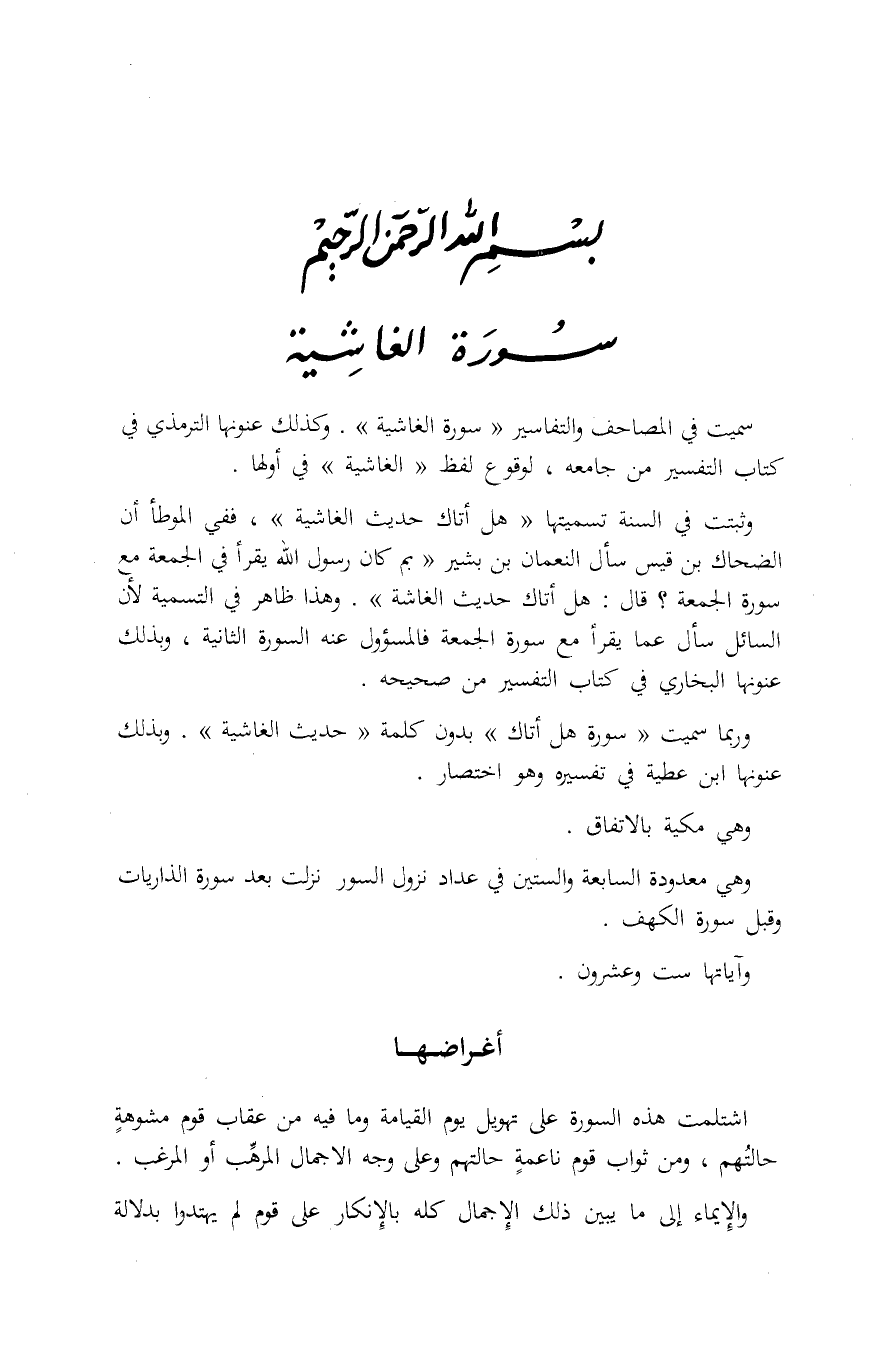 بسْــمِ الله الرّحمَن الرّحِيْم
سُــورَة الغاشِيــة
سميت في المصاحف والتفاسير « سورة الغاشية » . وكذلك عنونها الترمذي في
كتاب التفسير من جامعه ، لوقوع لفظ « الغاشية » في أولها .
وثبتت في السنة تسميتها « هل أتاك حديث الغاشية » ، ففي الموطأ أن
الضحاك بن قيس سأل النعمان بن بشير « بم كان رسول الله يقرأ في الجمعة مع
سورة الجمعة ؟ قال : هل أتاك حديث الغاشة » . وهذا ظاهر في التسمية لأن
السائل سأل عما يقرأ مع سورة الجمعة فالمسؤول عنه السورة الثانية ، وبذلك
عنونها البخاري في كتاب التفسير من صحيحه .
وربما سميت « سورة هل أتاك » بدون كلمة « حديث الغاشية » . وبذلك
عنونها ابن عطية في تفسيره وهو اختصار .
وهي مكية بالاتفاق .
وهي معدودة السابعة والستين في عداد نزول السور نزلت بعد سورة الذاريات
وقبل سورة الكهف .
وآياتها ست وعشرون .
أغـراضـهـا
اشتلمت هذه السورة على تهويل يوم القيامة وما فيه من عقاب قوم مشوهةٍ
حالتُهم ، ومن ثواب قوم ناعمةٍ حالتهم وعلى وجه الاجمال المرهِّب أو المرغب .
والإيماء إلى ما يبين ذلك الإجمال كله بالإنكار على قوم لم يهتدوا بدلالة